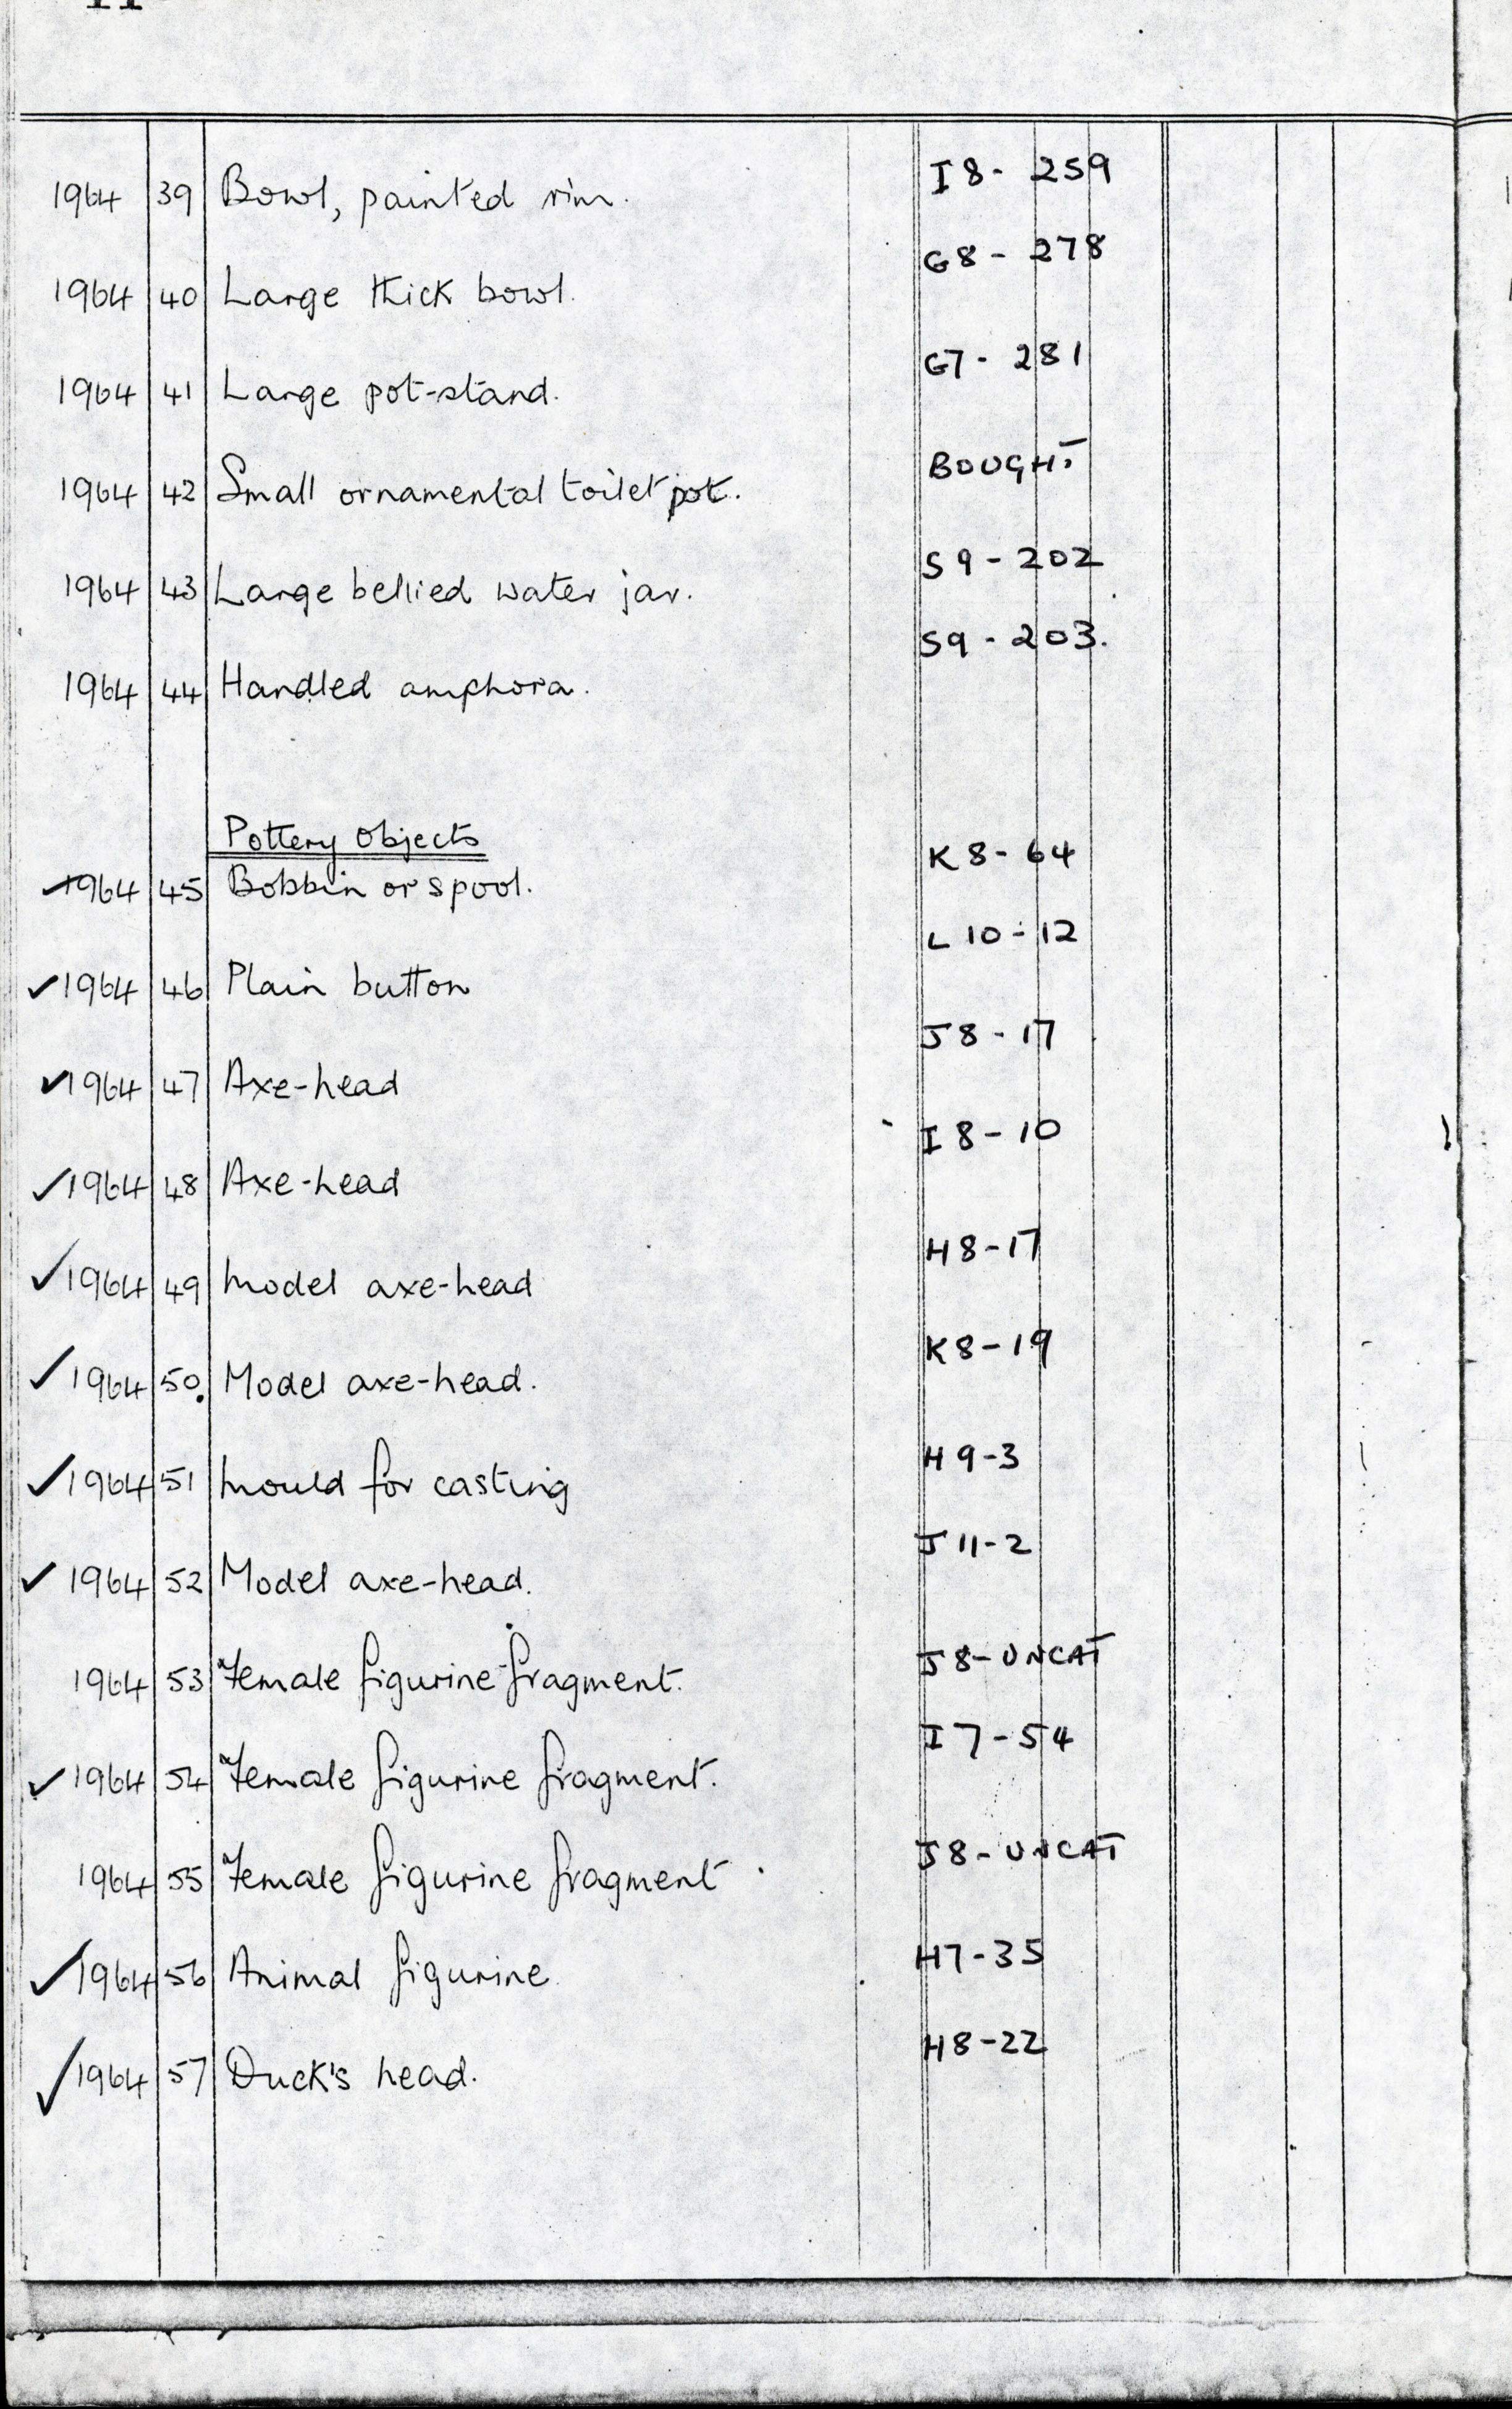 1964 39 Bowl, painted rim. I8- 259
1964 40 Large thick bowl. G8- 278
1964 41 Large pot-stand. G7- 281
1964 42 Small ornamental toilet pot. BOUGHT
1964 43 Large bellied water jar. S9-202
1964 44 Handled amphora. S9-203.
Pottery Objects
1964 45 Bobbin or spool. K8-64
✓1964 46 Plain button L10-12
✓1964 47 Axe-head J8-17
✓1964 48 Axe-head I8-10
✓1964 49 Model axe-head H8-17
✓1964 50. Model axe-head. K8-19
✓1964 51 Mould for casting H9-3
✓1964 52 Model axe-head. J11-2
1964 53 Female figurine-fragment. J8-UNCAT
✓1964 54 Female figurine fragment. I7-54
1964 55 Female figurine fragment. J8-UNCAT
✓1964 56 Animal figurine. H7-35
✓1964 57 Duck's head. H8-22